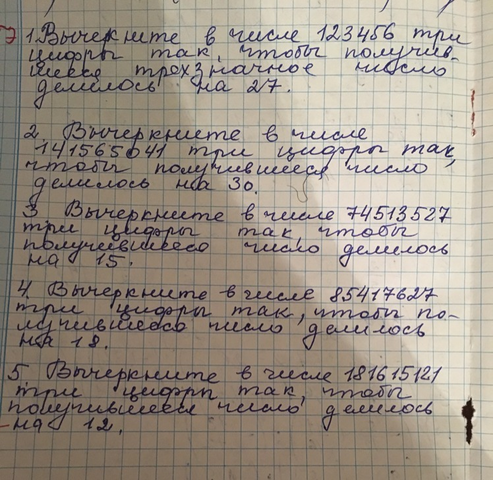 1. Вычеркните в числе 123456 три
цифры так, чтобы получив-
шееся трехзначное число
делилось на 27.
2. Вычеркните в числе
141565041 три цифры так,
чтобы получившееся число
делилось на 30.
3 Вычеркните в числе 74513527
три цифры так, чтобы
получившееся число делилось
на 15.
4. Вычеркните в числе 85417627
три цифры так, чтобы по-
лучившееся число делилось
на 18.
5 Вычеркните в числе 181615121
три цифры так, чтобы
получившееся число делилось
на 12.